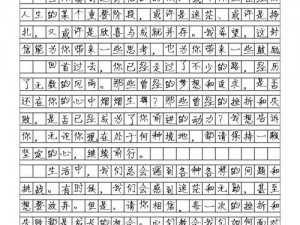 人生的某个重要阶段，或许是迷茫、或许是挣
扎，又或许是欣喜与成就并存。我希望，这封
信能为你带来一些思考，也为你带来一些鼓励
回首过去，你已经不是昨日的自己，你已经历
了无数的风雨。那些曾经的梦想和追求，是否
还在你的心中熠熠生辉？那些曾经的挫折和失
败，是否已成为你前行的动力？我想告诉
你，无论你现在处于何种境地，都请保持一颗
坚定的心，继续前行。
生活中，我们总会遇到各种各样的问题和
挑战。有时候，我们会感到迷茫和无助，甚至
想要放弃。但是，请你相信，每一次的挫折和
失败都是成长的机会，